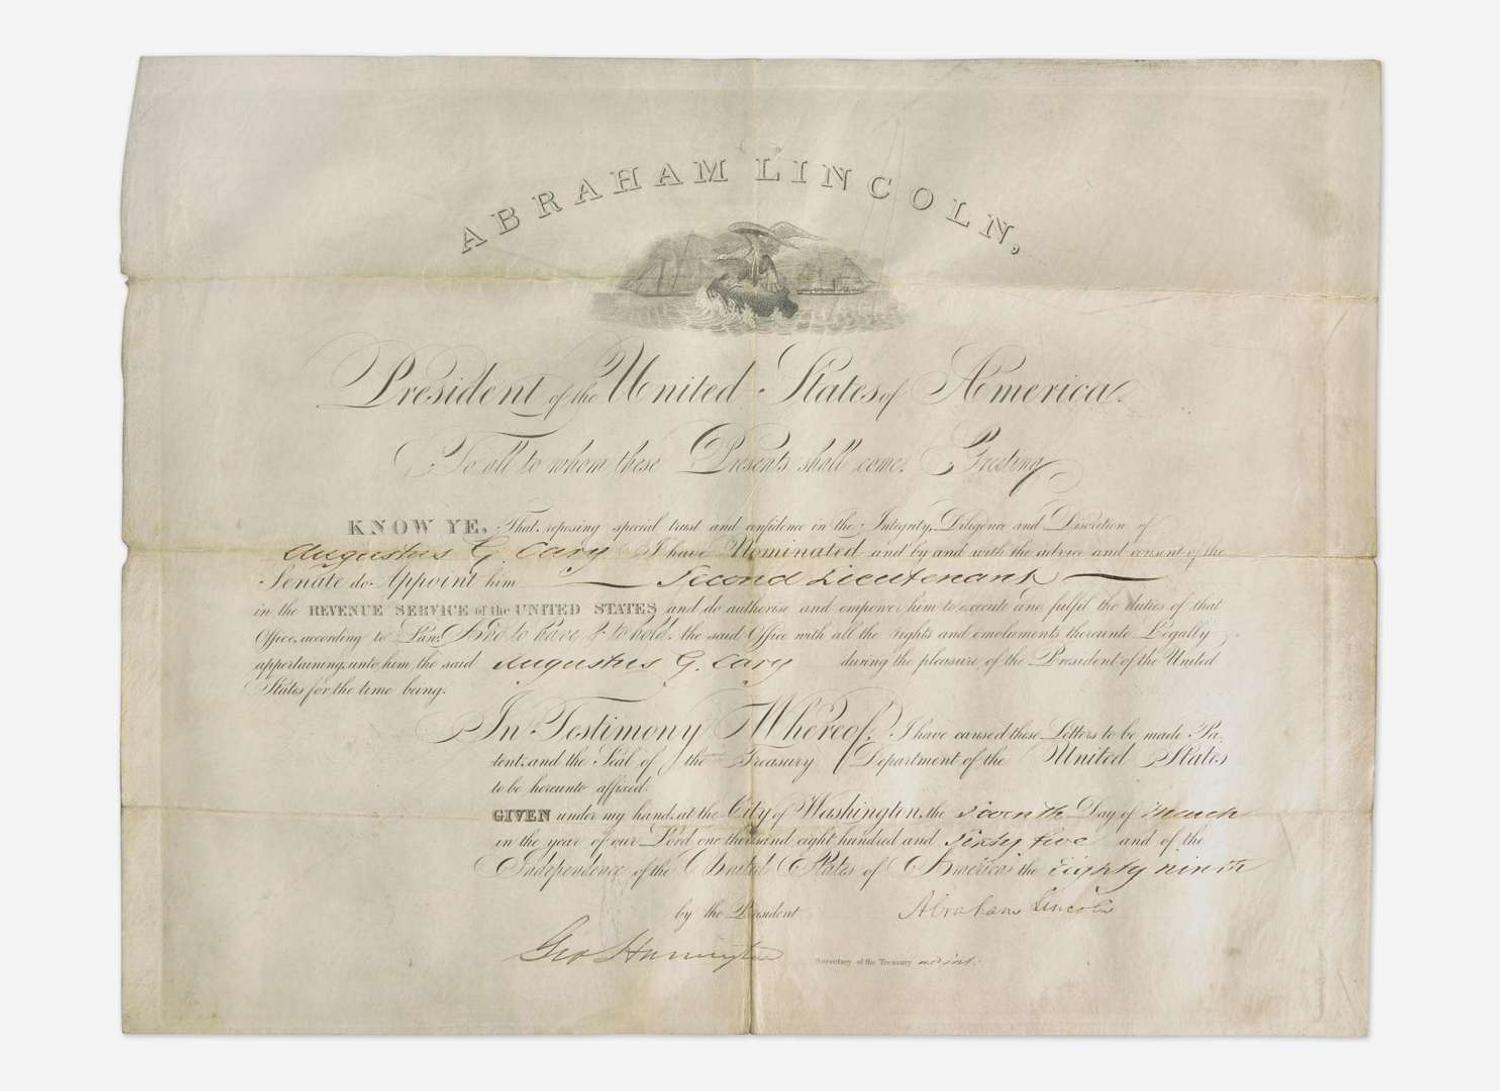 ABRAHAM LINCOLN,
President of the United States of America.
To all to whom these Presents shall come, Greeting
KNOW YE, That reposing special trust and confidence in the Integrity, Diligence and Discretion of
Augustus G. Cary I have Nominated and by and with the advice and consent of the
Senate do Appoint him Second Lieutenant
in the REVENUE SERVICE of the UNITED STATES and do authorise and empower him to execute and fulfil the duties of that
Office, according to Law: And to have & to hold, the said Office with all the rights and emoluments thereunto Legally
appertaining, unto him the said Augustus G. Cary during the pleasure, of the President of the United
States for the time being.
In Testimony Whereof, I have caused these Letters to be made Pa-
tent, and the Seal of the Treasury Department of the United States
to be hereunto affixed.
GIVEN under my hand, at the City of Washington, the Day of March
in the year of our Lord one thousand eight hundred and Sixty five and of the
Independence of the United States of America, the Eighty ninth
by the President Abraham Lincoln
Geo Harrington Secretary of the Treasury